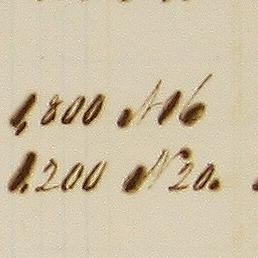 1,800 N16
1,200 N20.